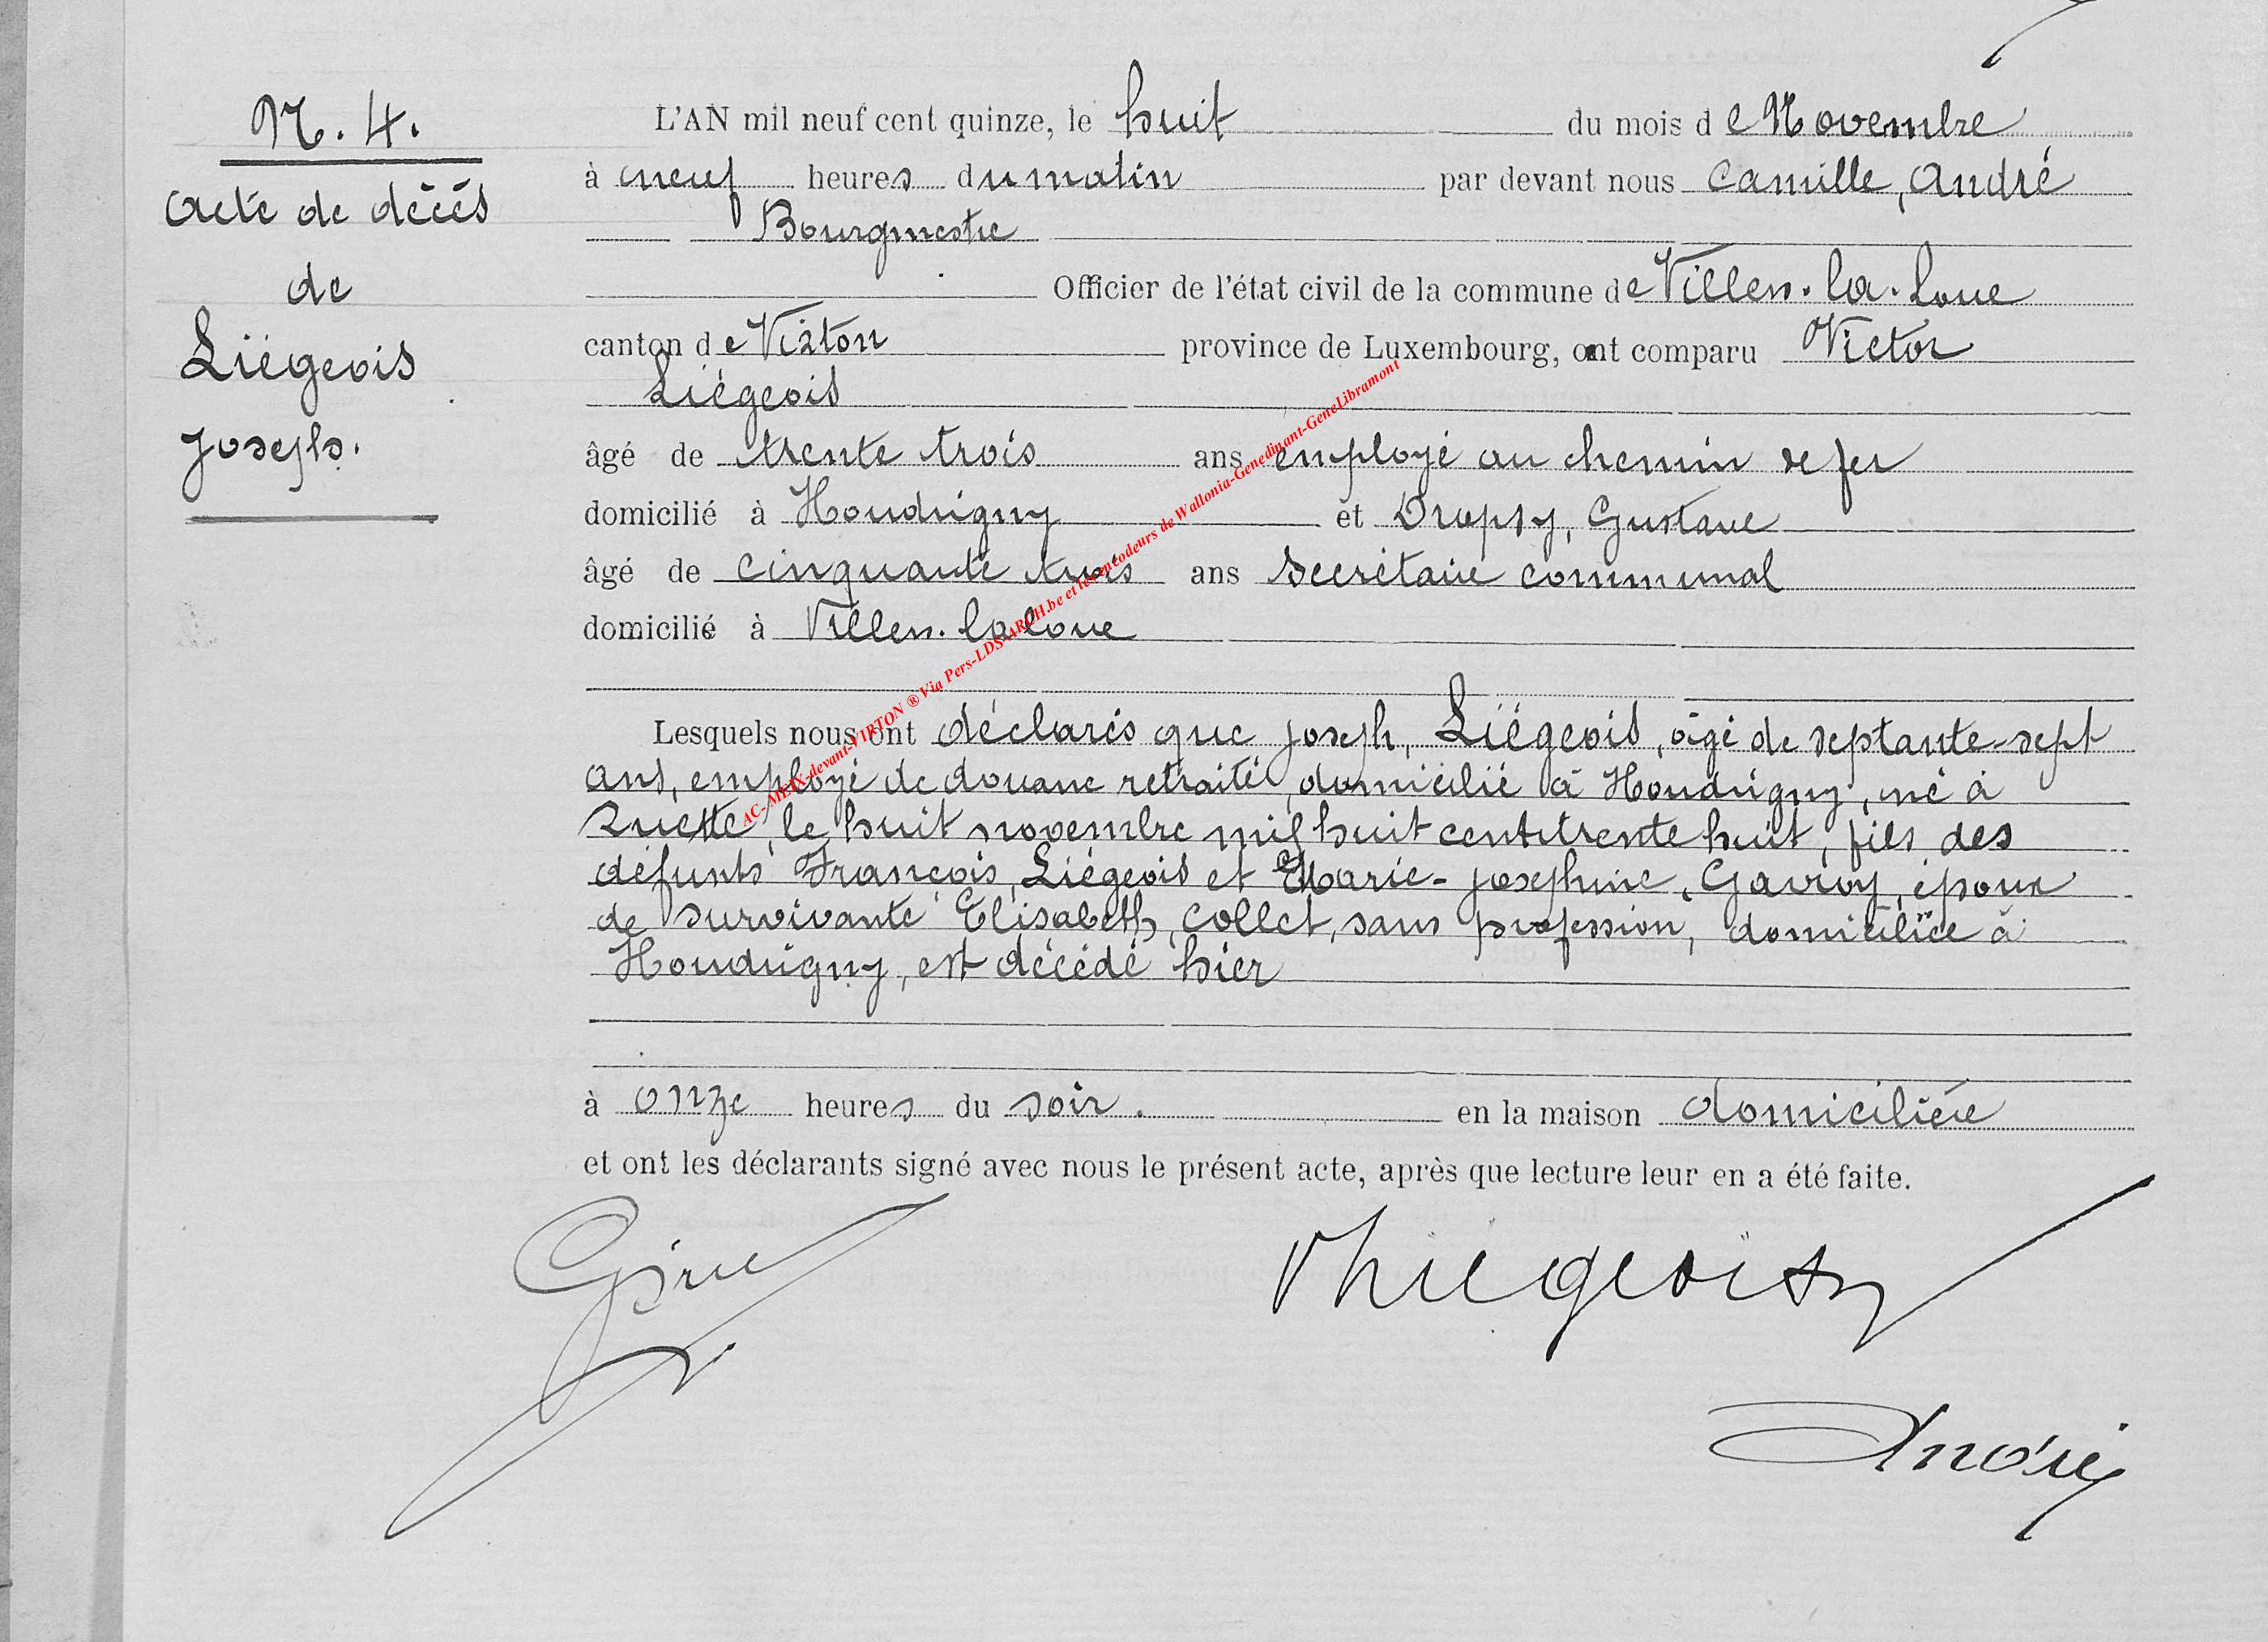 N. 4.
Acte de décès
de
Liégeois
Joseph.
L'AN mil neuf cent quinze, le huit du mois de Novembre
à neuf heures du matin par devant nous Camille, André
Bourgmestre
Officier de l'état civil de la commune de Villers-la-Loue
canton de Virton province de Luxembourg, ont comparu Victor
Liégeois
âgé de trente trois ans employé au chemin de fer
domicilié à Houdrigny et Dropsy, Gustave
âgé de cinquante trois ans secrétaire communal
domicilié à Villers-la loue
Lesquels nous ont déclarés que Joseph, Liégeois, âgé de septante-sept
ans, employé de douane retraité, domicilié à Houdrigny, né à
Ruette, le huit novembre mil huit cent trente huit, fils des
défunts François, Liégeois et Marie-Joséphine, Gavroy, époux
de survivante Elisabeth, Collet, sans profession, domiciliée à
Houdrigny, est décédé hier
à onze heures du soir. en la maison domiciliére
et ont les déclarants signé avec nous le présent acte, après que lecture leur en a été faite.
VLiégeois
André
AC-MEIX-devant-VIRTON ® Via Pers-LDS-ARCH.be et les encodeurs de Wallonia-Genedinant-GeneLibramont